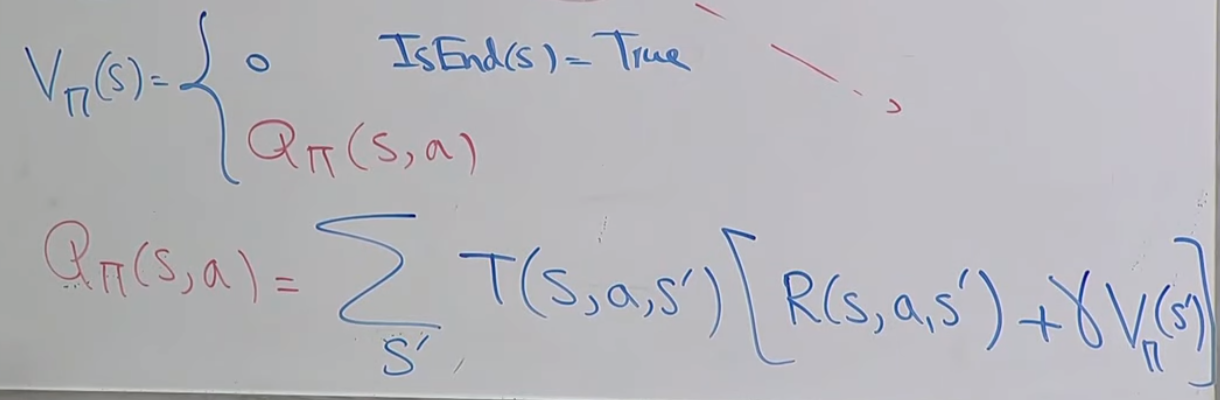 V_π(s) = { 0 IsEnd(s) = True
Q_π(s, a)
Q_π(s, a) = ∑_{s'} T(s, a, s') [R(s, a, s') + γ V_π(s')]